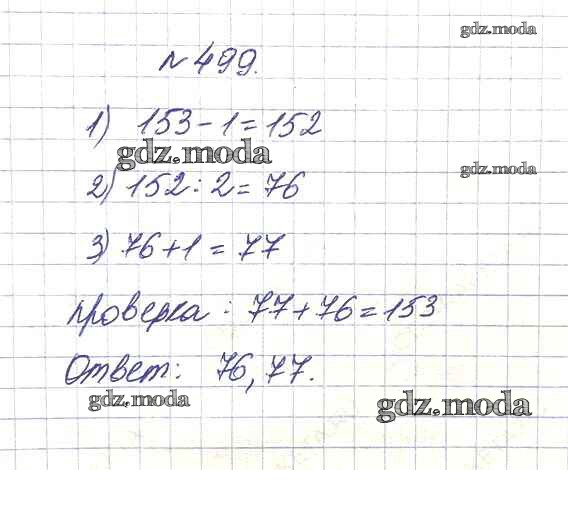 gdz.moda
№ 499.
1) 153 - 1 = 152
gdz.moda
gdz.moda
2) 152 : 2 = 76
3) 76 + 1 = 77
проверка : 77 + 76 = 153
Ответ: 76, 77.
gdz.moda
gdz.moda